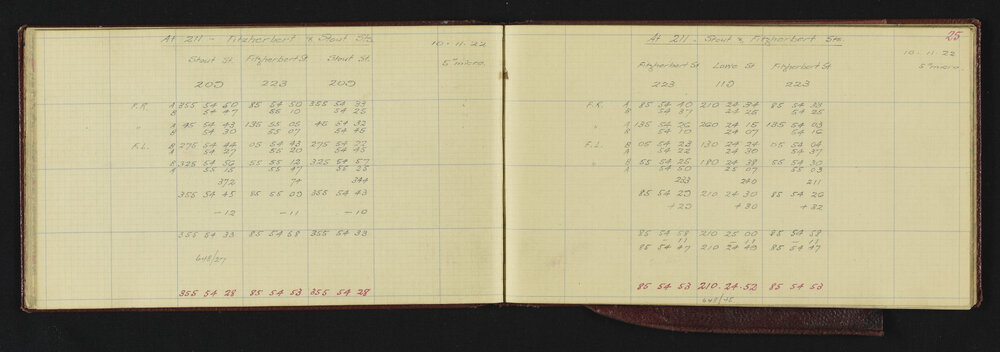 At 211 - Fitzherbert & Stout Sts.
10.11.22
Stout St. Fitzherbert St Stout St.
5" micro.
209 223 209
F.R. A 355 54 50 85 54 50 355 54 33
B 54 47 55 10 54 25
" A 45 54 43 135 55 05 45 54 32
B 54 30 55 07 54 45
F.L. B 275 54 44 05 54 43 275 54 22
A 54 27 55 20 54 45
B 325 54 56 55 55 12 325 54 57
A 55 15 55 47 55 25
372 74 344
355 54 45 85 55 09 355 54 43
-12 -11 -10
355 54 33 85 54 58 355 54 33
648/27
355 54 28 85 54 53 355 54 28
25
At 211 - Stout & Fitzherbert Sts.
10.11.22
Fitzherbert St Lowe St Fitzherbert St
5" micro.
223 119 223
F.R. A 85 54 40 210 24 34 85 54 33
B 54 37 24 25 54 25
" A 135 54 26 260 24 15 135 54 03
B 54 10 24 07 54 16
F.L. B 05 54 23 130 24 24 05 54 04
A 54 22 24 30 54 37
B 55 54 25 180 24 38 55 54 30
A 54 50 25 07 55 03
233 240 211
85 54 29 210 24 30 85 54 26
+29 +30 +32
85 54 58 210 25 00 85 54 58
-11 -11 -11
85 54 47 210 24 49 85 54 47
85 54 53 210.24.52 85 54 53
648/45